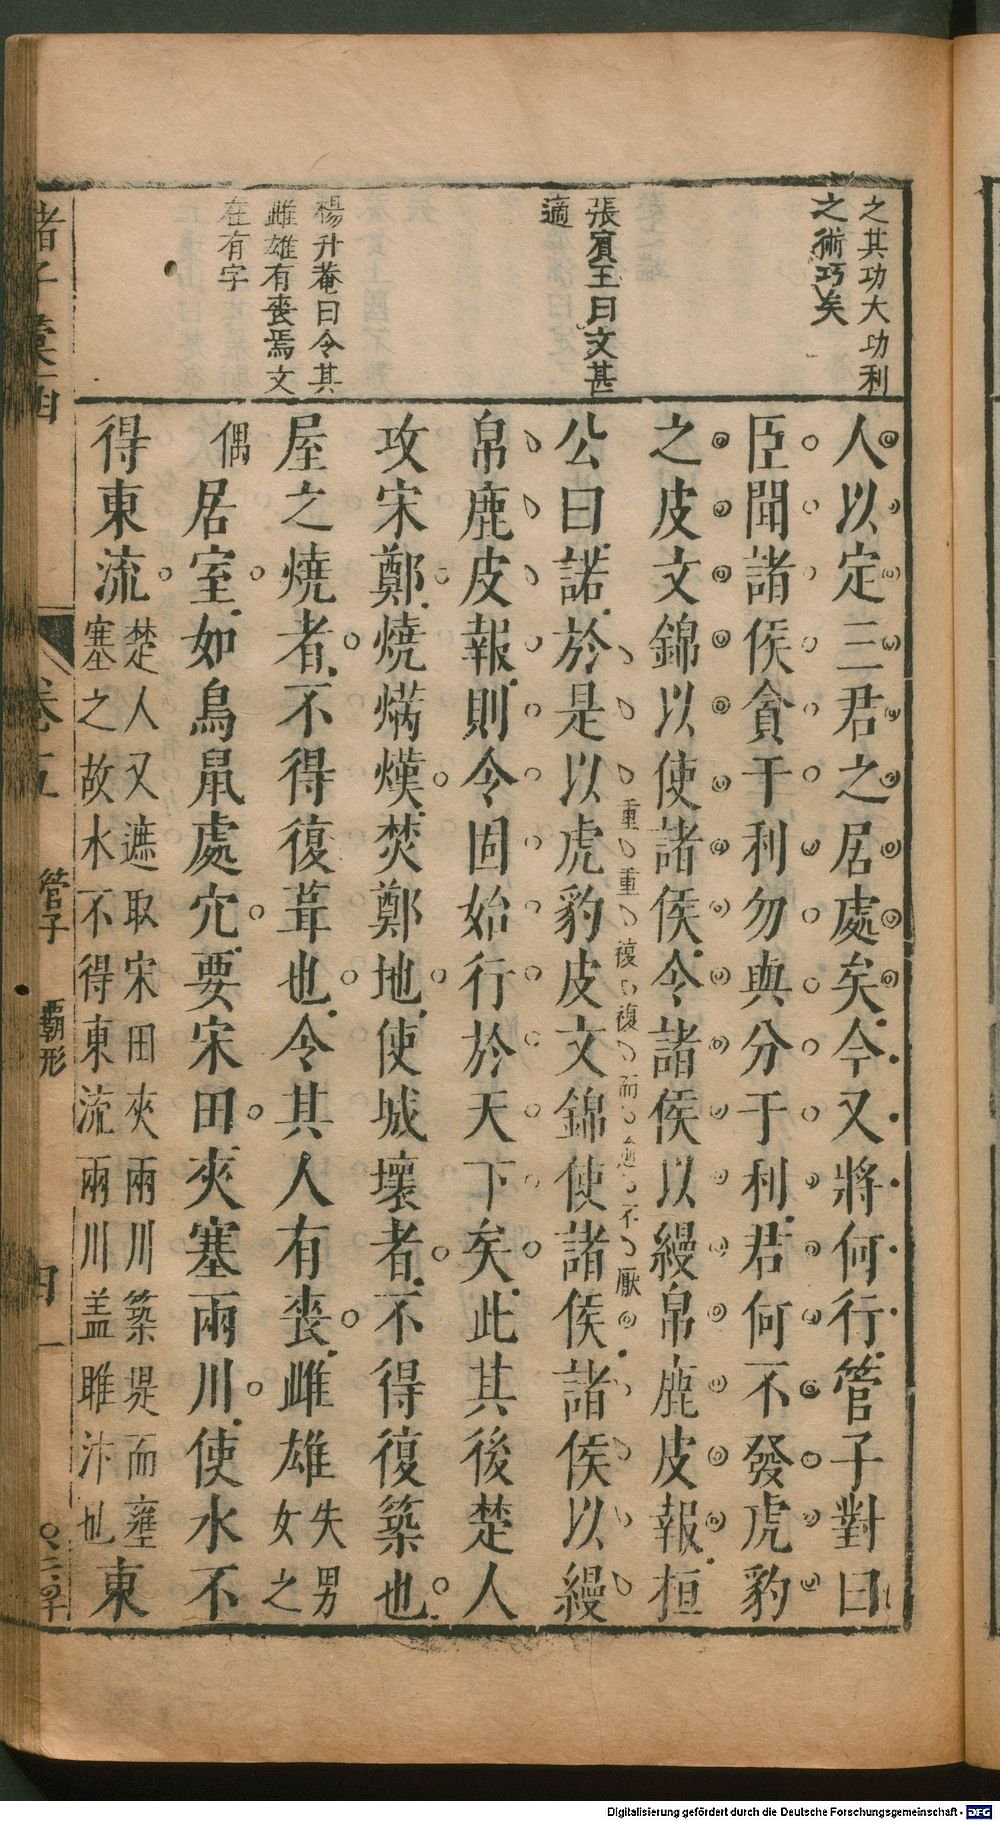 之其功大功利
之術巧矣
張賓王曰文甚
適
楊升菴曰令其
雌雄有喪焉文
在有字
人以定三君之居處矣今又將何行管子對曰
臣聞諸侯貪于利勿與分于利君何不發虎豹
之皮文錦以使諸侯令諸侯以縵帛鹿皮報桓
公曰諾於是以虎豹皮文錦使諸侯諸侯以縵
重重復復而 不厭
帛鹿皮報則令固始行於天下矣此其後楚人
攻宋鄭燒焫熯焚鄭地使城壞者不得復築也
屋之燒者不得復葺也令其人有喪雌雄失男女之
偶居室如鳥鼠處穴要宋田夾塞兩川使水不
得東流楚人又遮取宋田夾兩川築堤而壅塞之故水不得東流兩川盖雎汴也東
諸子
卷五
管子
霸形
四一
Digitalisierung gefördert durch die Deutsche Forschungsgemeinschaft - DFG